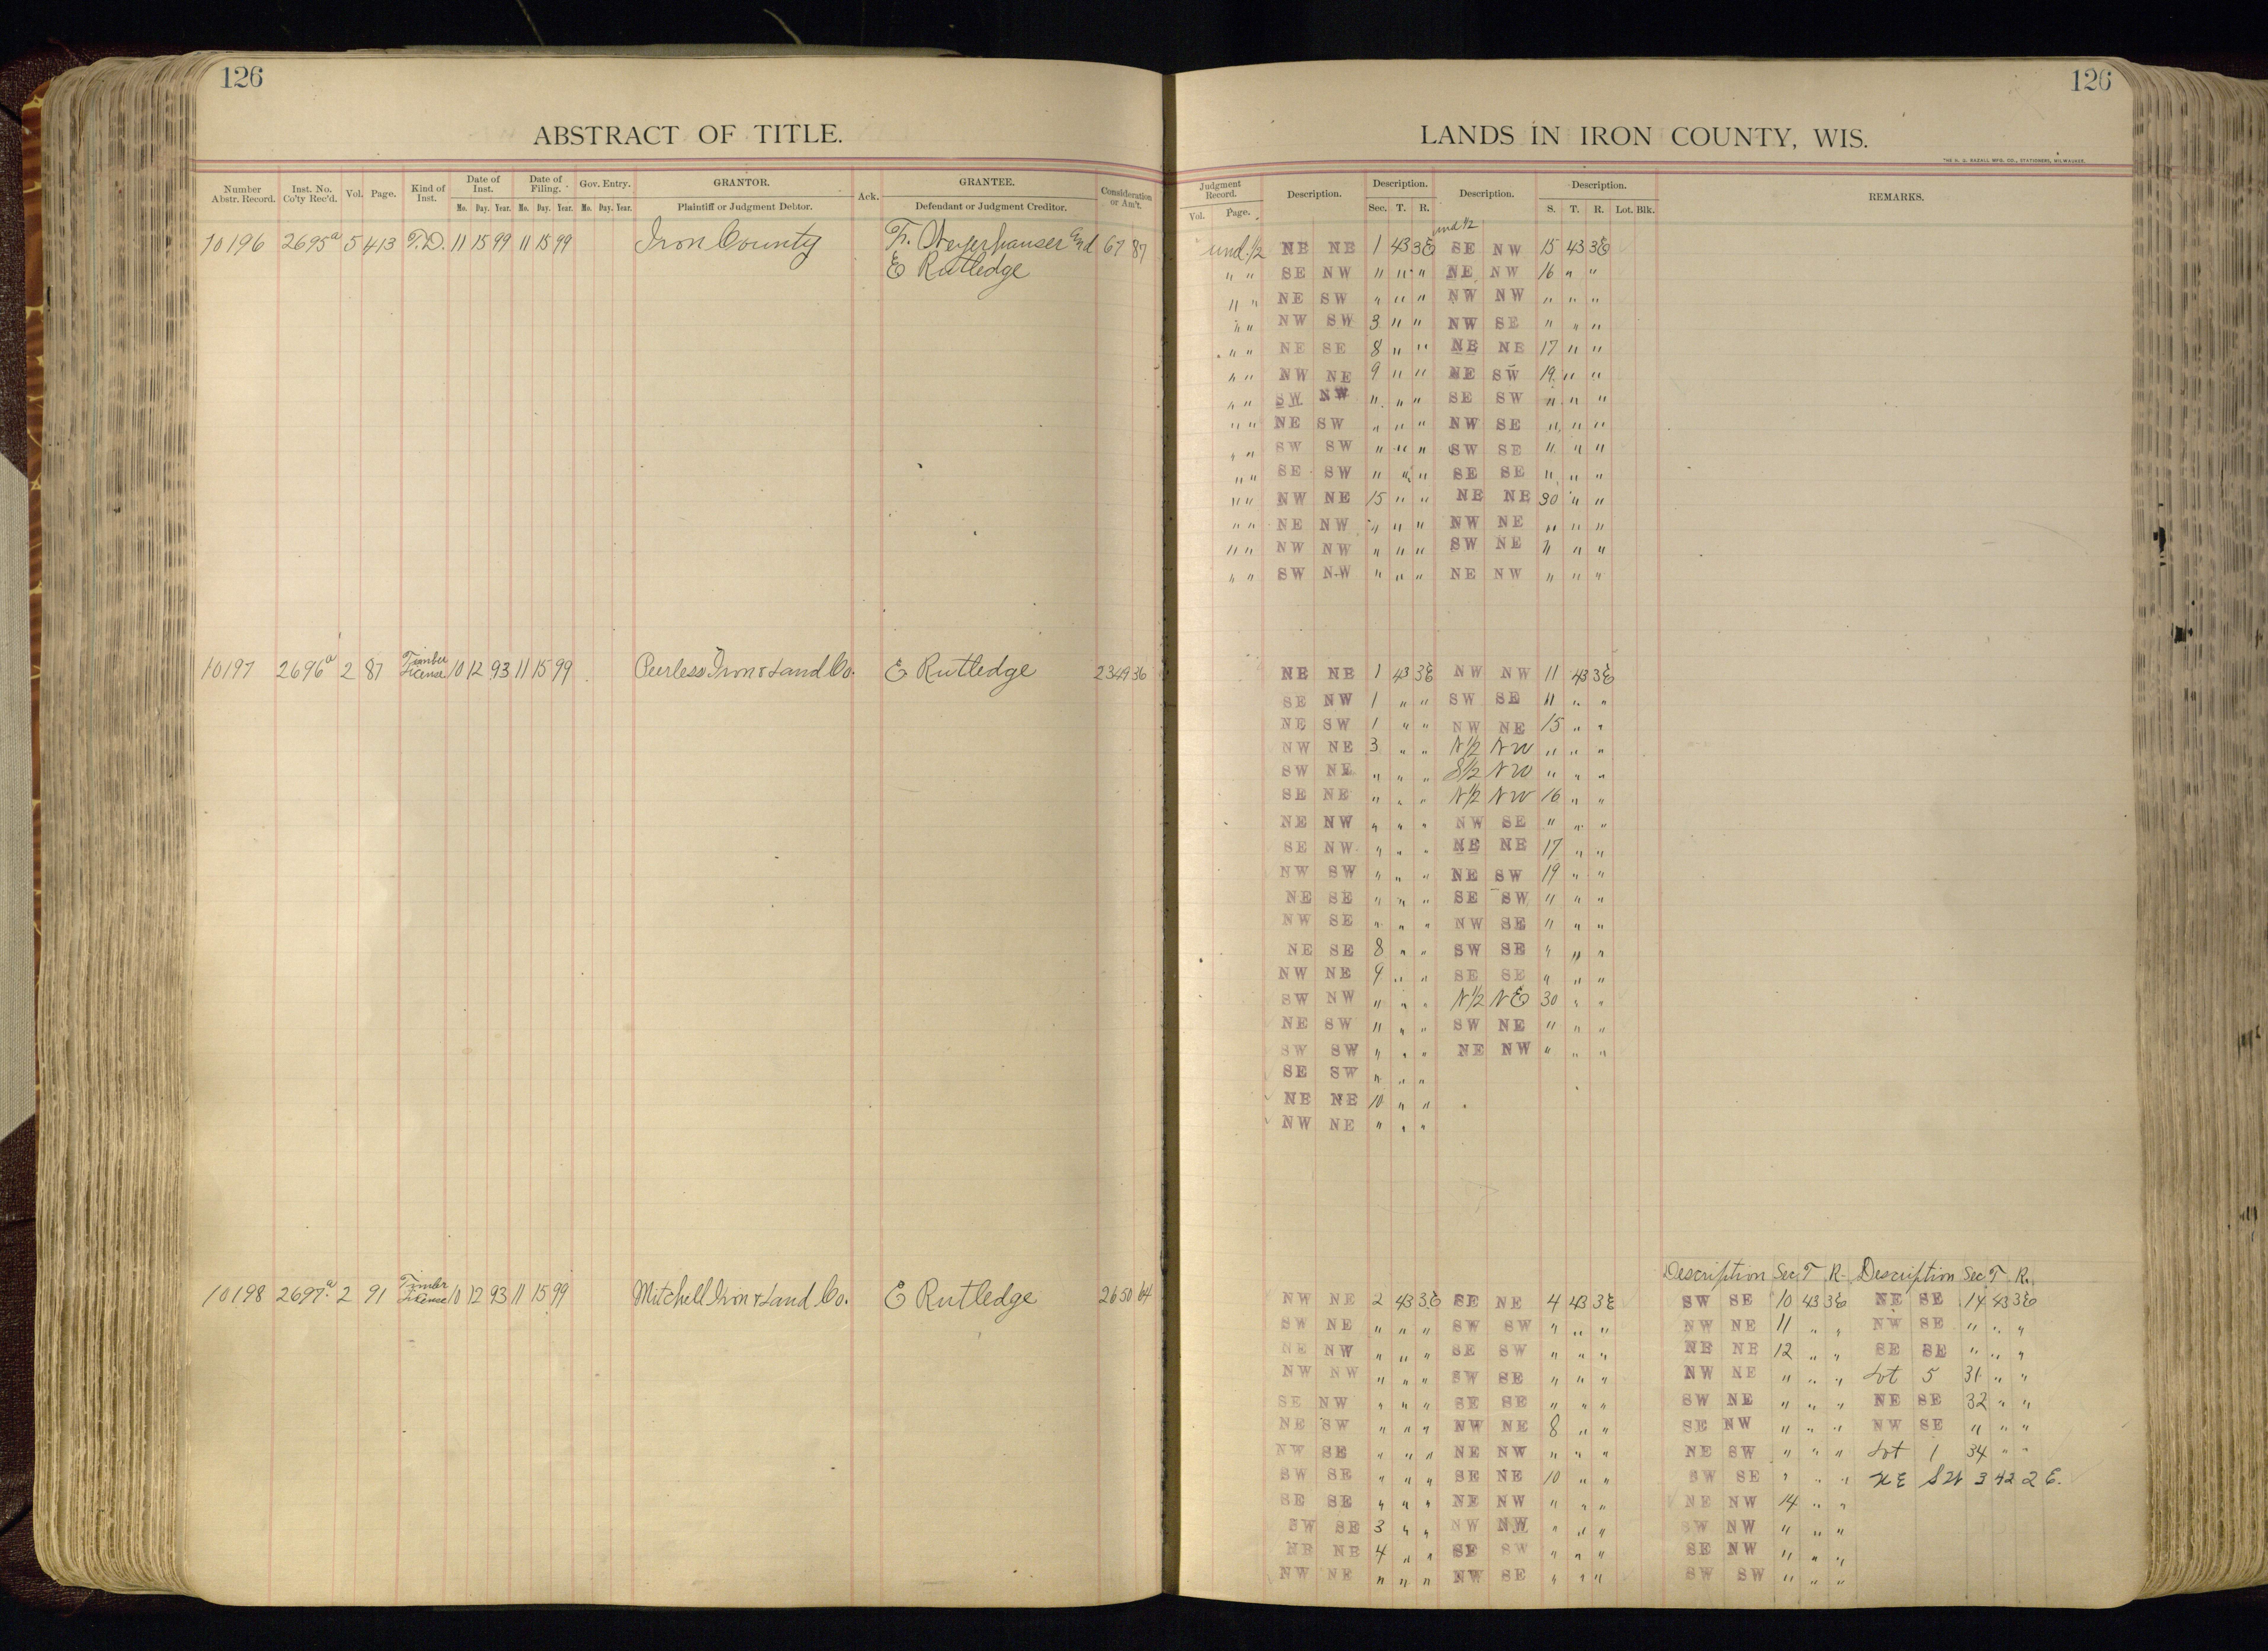 126
126
ABSTRACT OF TITLE.
LANDS IN IRON COUNTY, WIS.
THE H. G. RAZALL MFG. CO., STATIONERS, MILWAUKEE.
Number Abstr. Record. Inst. No. Co'ty Rec'd. Vol. Page. Kind of Inst. Date of Inst. Mo. Day. Year. Date of Filing. Mo. Day. Year. Gov. Entry. Mo. Day. Year. GRANTOR. Plaintiff or Judgment Debtor. Ack. GRANTEE. Defendant or Judgment Creditor. Consideration or Am't.
Judgment Record. Vol. Page. Description. Description. Sec. T. R. Description. Description. S. T. R. Lot. Blk. REMARKS.
und 1/2
10196 2695a 5 413 T.D. 11 15 99 11 15 99 Iron County F. Weyerhauser and 67 87 und. 1/2 NE NE 1 43 3E SE NW 15 43 3E
E Rutledge " " SE NW " " " NE NW 16 " "
" " NE SW " " " NW NW " " "
" " NW SW 3 " " NW SE " " "
" " NE SE 8 " " NE NE 17 " "
" " NW NE 9 " " NE SW 19 " "
" " SW NW " " " SE SW " " "
" " NE SW " " " NW SE " " "
" " SW SW " " " SW SE " " "
" " SE SW " " " SE SE " " "
" " NW NE 15 " " NE NE 30 " "
" " NE NW " " " NW NE " " "
" " NW NW " " " SW NE " " "
" " SW NW " " " NE NW " " "
10197 2696a 2 87 Timber License 10 12 93 11 15 99 Peerless Iron & Land Co. E Rutledge 2349 36 NE NE 1 43 3E NW NW 11 43 3E
SE NW 1 " " SW SE 11 " "
NE SW 1 " " NW NE 15 " "
NW NE 3 " " N1/2 NW " " "
SW NE " " " S1/2 NW " " "
SE NE " " " N1/2 NW 16 " "
NE NW " " " NW SE " " "
SE NW " " " NE NE 17 " "
NW SW " " " NE SW 19 " "
NE SE " " " SE SW " " "
NW SE " " " NW SE " " "
NE SE 8 " " SW SE " " "
NW NE 9 " " SE SE " " "
SW NW " " " N1/2 NE 30 " "
NE SW " " " SW NE " " "
SW SW " " " NE NW " " "
SE SW " " "
NE NE 10 " "
NW NE " " "
Description Sec T R. Description Sec T R.
10198 2697a 2 91 Timber License 10 12 93 11 15 99 Mitchell Iron & Land Co. E Rutledge 2650 64 NW NE 2 43 3E SE NE 4 43 3E SW SE 10 43 3E NE SE 14 43 3E
SW NE " " " SW SW " " " NW NE 11 " " NW SE " " "
NE NW " " " SE SW " " " NE NE 12 " " SE SE " " "
NW NW " " " SW SE " " " NW NE " " " Lot 5 31 " "
SE NW " " " SE SE " " " SW NE " " " NE SE 32 " "
NE SW " " " NW NE 8 " " SE NW " " " NW SE " " "
NW SE " " " NE NW " " " NE SW " " " Lot 1 34 " "
SW SE " " " SE NE 10 " " SW SE " " " NE SW 3 42 2 E.
SE SE " " " NE NW " " " NE NW 14 " "
SW SE 3 " " NW NW " " " SW NW " " "
NE NE 4 " " SE SW " " " SE NW " " "
NW NE " " " NW SE " " " SW SW " " "